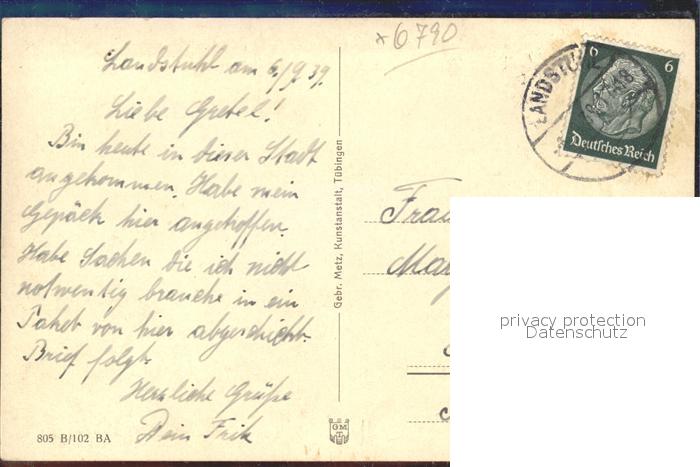 *6790
Landstuhl am 6/9.39.
Liebe Gretel!
Bin heute in dieser Stadt
angekommen. Habe mein
Gepäck hier angetroffen.
Habe Sachen die ich nicht
notwentig brauche in ein
Paket von hier abgeschickt.
Brief folgt.
Herzliche Grüße
Dein Frik
805 B/102 BA
Gebr. Metz, Kunstanstalt, Tübingen
GM
T
LANDSTUHL
6 6
Deutsches Reich
Frau
May
privacy protection
Datenschutz